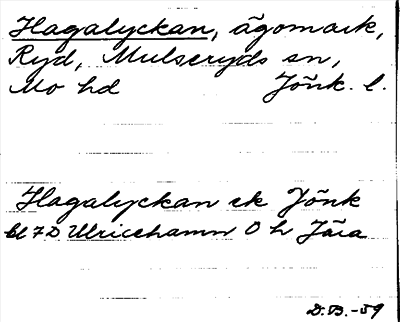 Hagalyckan, ägomark,
Ryd, Mulseryds sn,
Mo hd Jönk. l.
Hagalyckan ek Jönk
bl 7D Ulricehamn O h Jära
D.B. -59